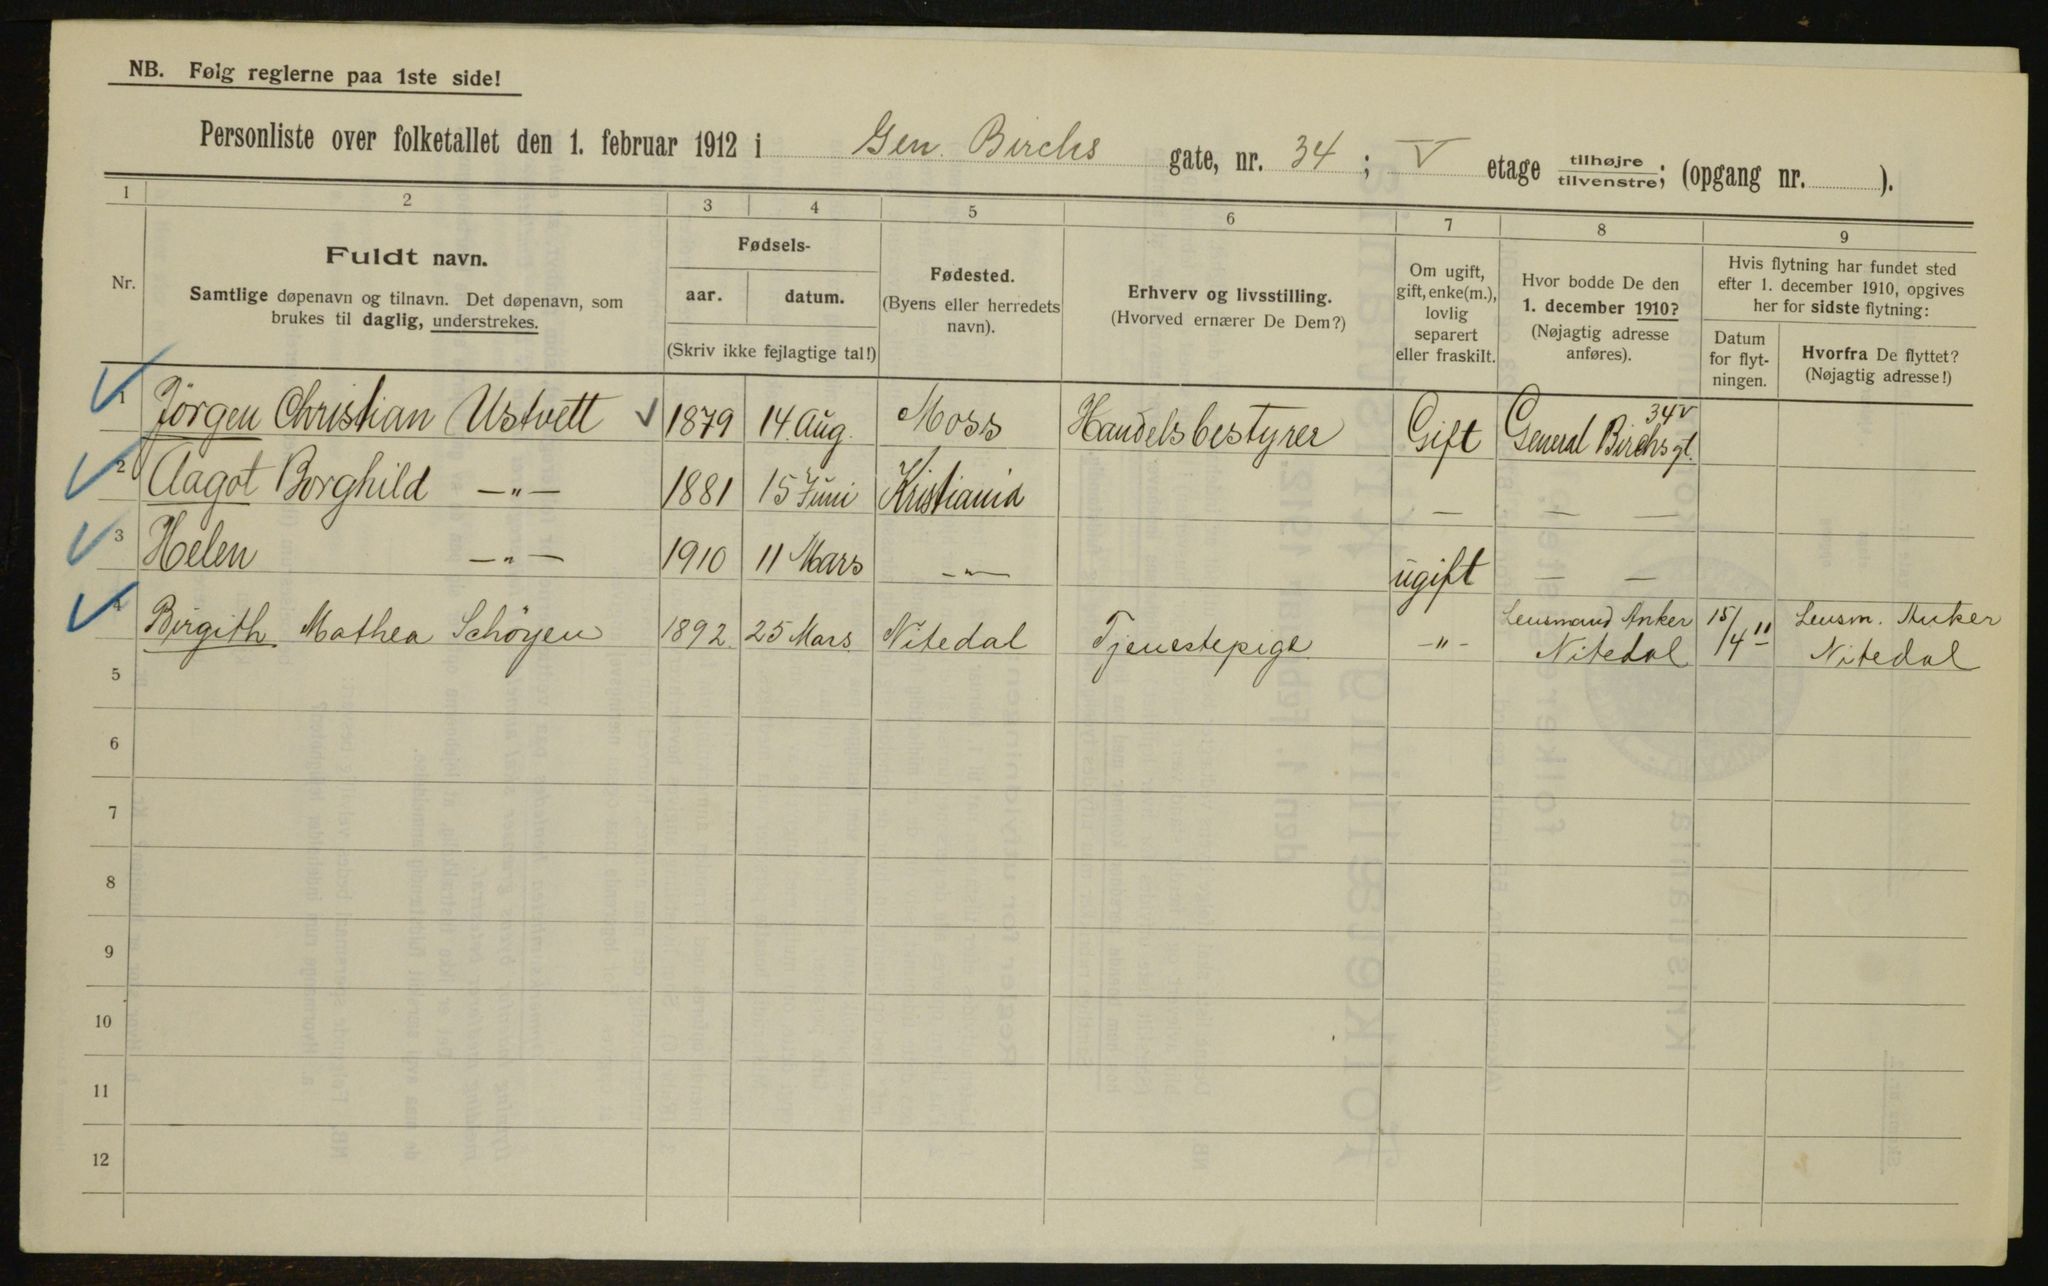 NB. Følg reglerne paa 1ste side!
Personliste over folketallet den 1. februar 1912 i Gen. Birchs gate, nr. 34; V etage tilhøjre/tilvenstre; (opgang nr. ).
1 2 3 4 5 6 7 8 9
Nr.
Fuldt navn.
Samtlige døpenavn og tilnavn. Det døpenavn, som
brukes til daglig, understrekes.
Fødsels-
aar. datum.
(Skriv ikke fejlagtige tal!)
Fødested.
(Byens eller herredets
navn).
Erhverv og livsstilling.
(Hvorved ernærer De Dem?)
Om ugift,
gift, enke(m.),
lovlig
separert
eller fraskilt.
Hvor bodde De den
1. december 1910?
(Nøjagtig adresse
anføres).
Hvis flytning har fundet sted
efter 1. december 1910, opgives
her for sidste flytning:
Datum
for flyt-
ningen.
Hvorfra De flyttet?
(Nøjagtig adresse!)
1 Jörgen Christian Ustvett 1879 14 Aug. Moss Handelsbestyrer Gift General Birchsgt. 34 V
2 Aagot Borghild —"— 1881 15 Juni Kristiania — — —
3 Helen —"— 1910 11 Mars —"— ugift — —
4 Birgith Mathea Schöyen 1892. 25 Mars. Nitedal Tjenestepige -"- Lensmand Anker Nitedal 15/4 11 Lensm. Anker Nitedal
5
6
7
8
9
10
11
12